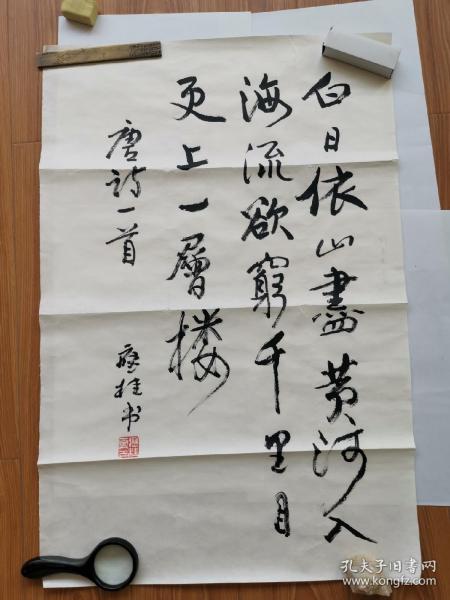 白日依山盡黄河入
海流欲窮千里目
更上一層楼
唐詩一首
书
孔夫子旧书网
www.kongfz.com